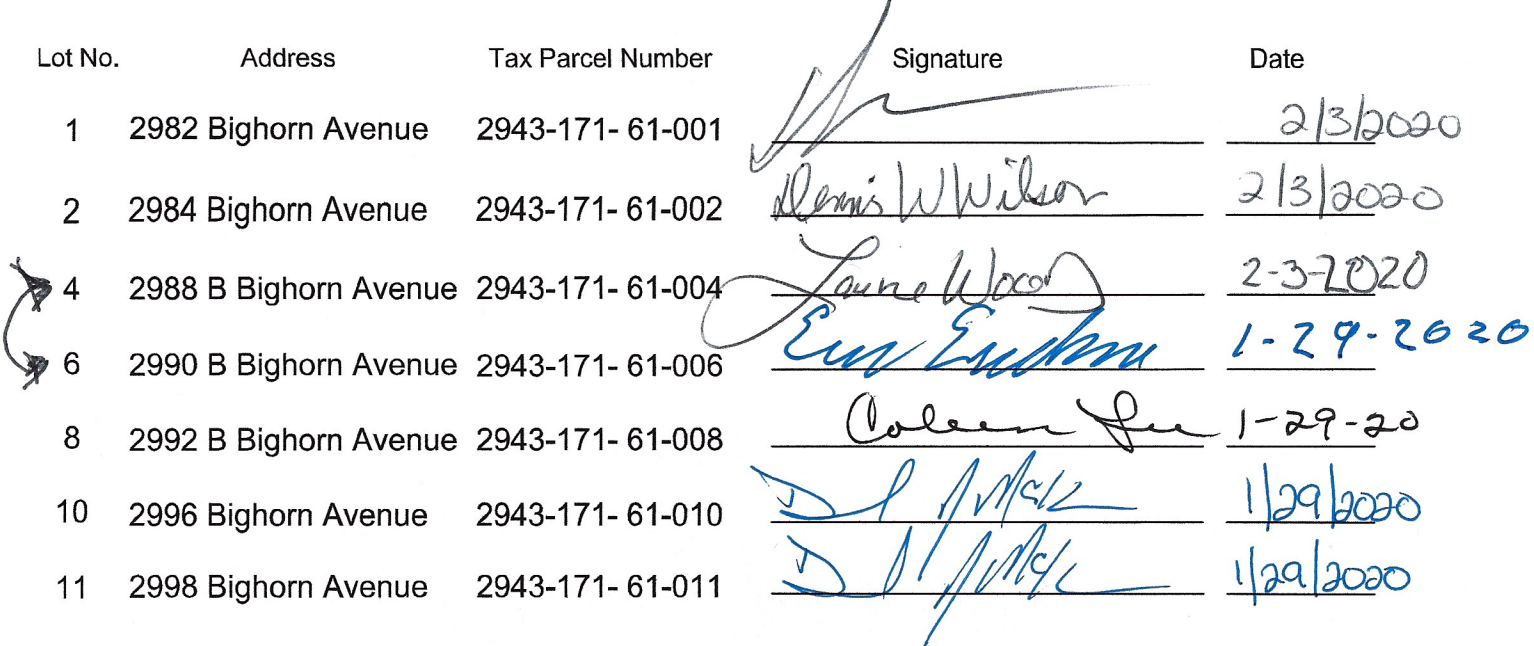 Lot No. Address Tax Parcel Number Signature Date
1 2982 Bighorn Avenue 2943-171- 61-001 2/3/2020
2 2984 Bighorn Avenue 2943-171- 61-002 Dennis W Wilson 2/3/2020
4 2988 B Bighorn Avenue 2943-171- 61-004 Laurie Wood 2-3-2020
6 2990 B Bighorn Avenue 2943-171- 61-006 1-29-2020
8 2992 B Bighorn Avenue 2943-171- 61-008 Coleen Lee 1-29-20
10 2996 Bighorn Avenue 2943-171- 61-010 1/29/2020
11 2998 Bighorn Avenue 2943-171- 61-011 1/29/2020